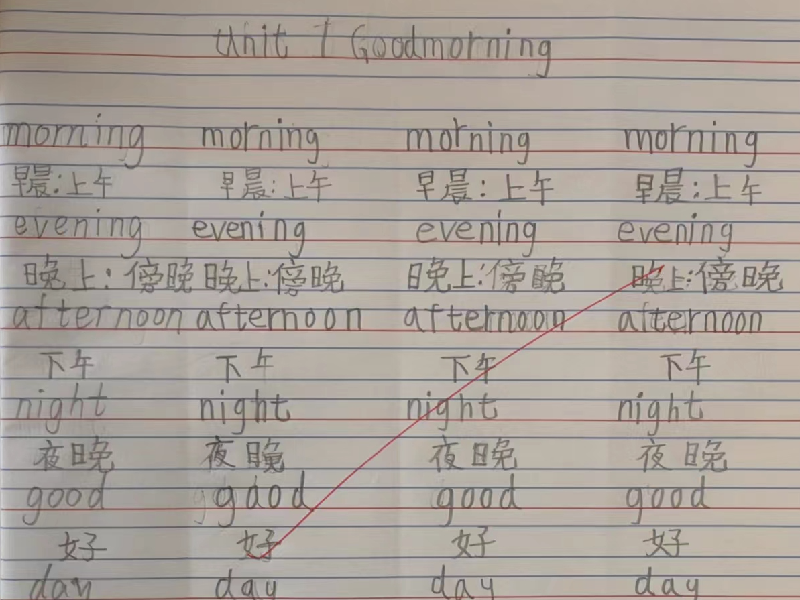 Unit 1 Goodmorning
morning morning morning morning
早晨:上午 早晨:上午 早晨:上午 早晨:上午
evening evening evening evening
晚上:傍晚 晚上:傍晚 晚上:傍晚 晚上:傍晚
afternoon afternoon afternoon afternoon
下午 下午 下午 下午
night night night night
夜晚 夜晚 夜晚 夜晚
good good good good
好 好 好 好
day day day day